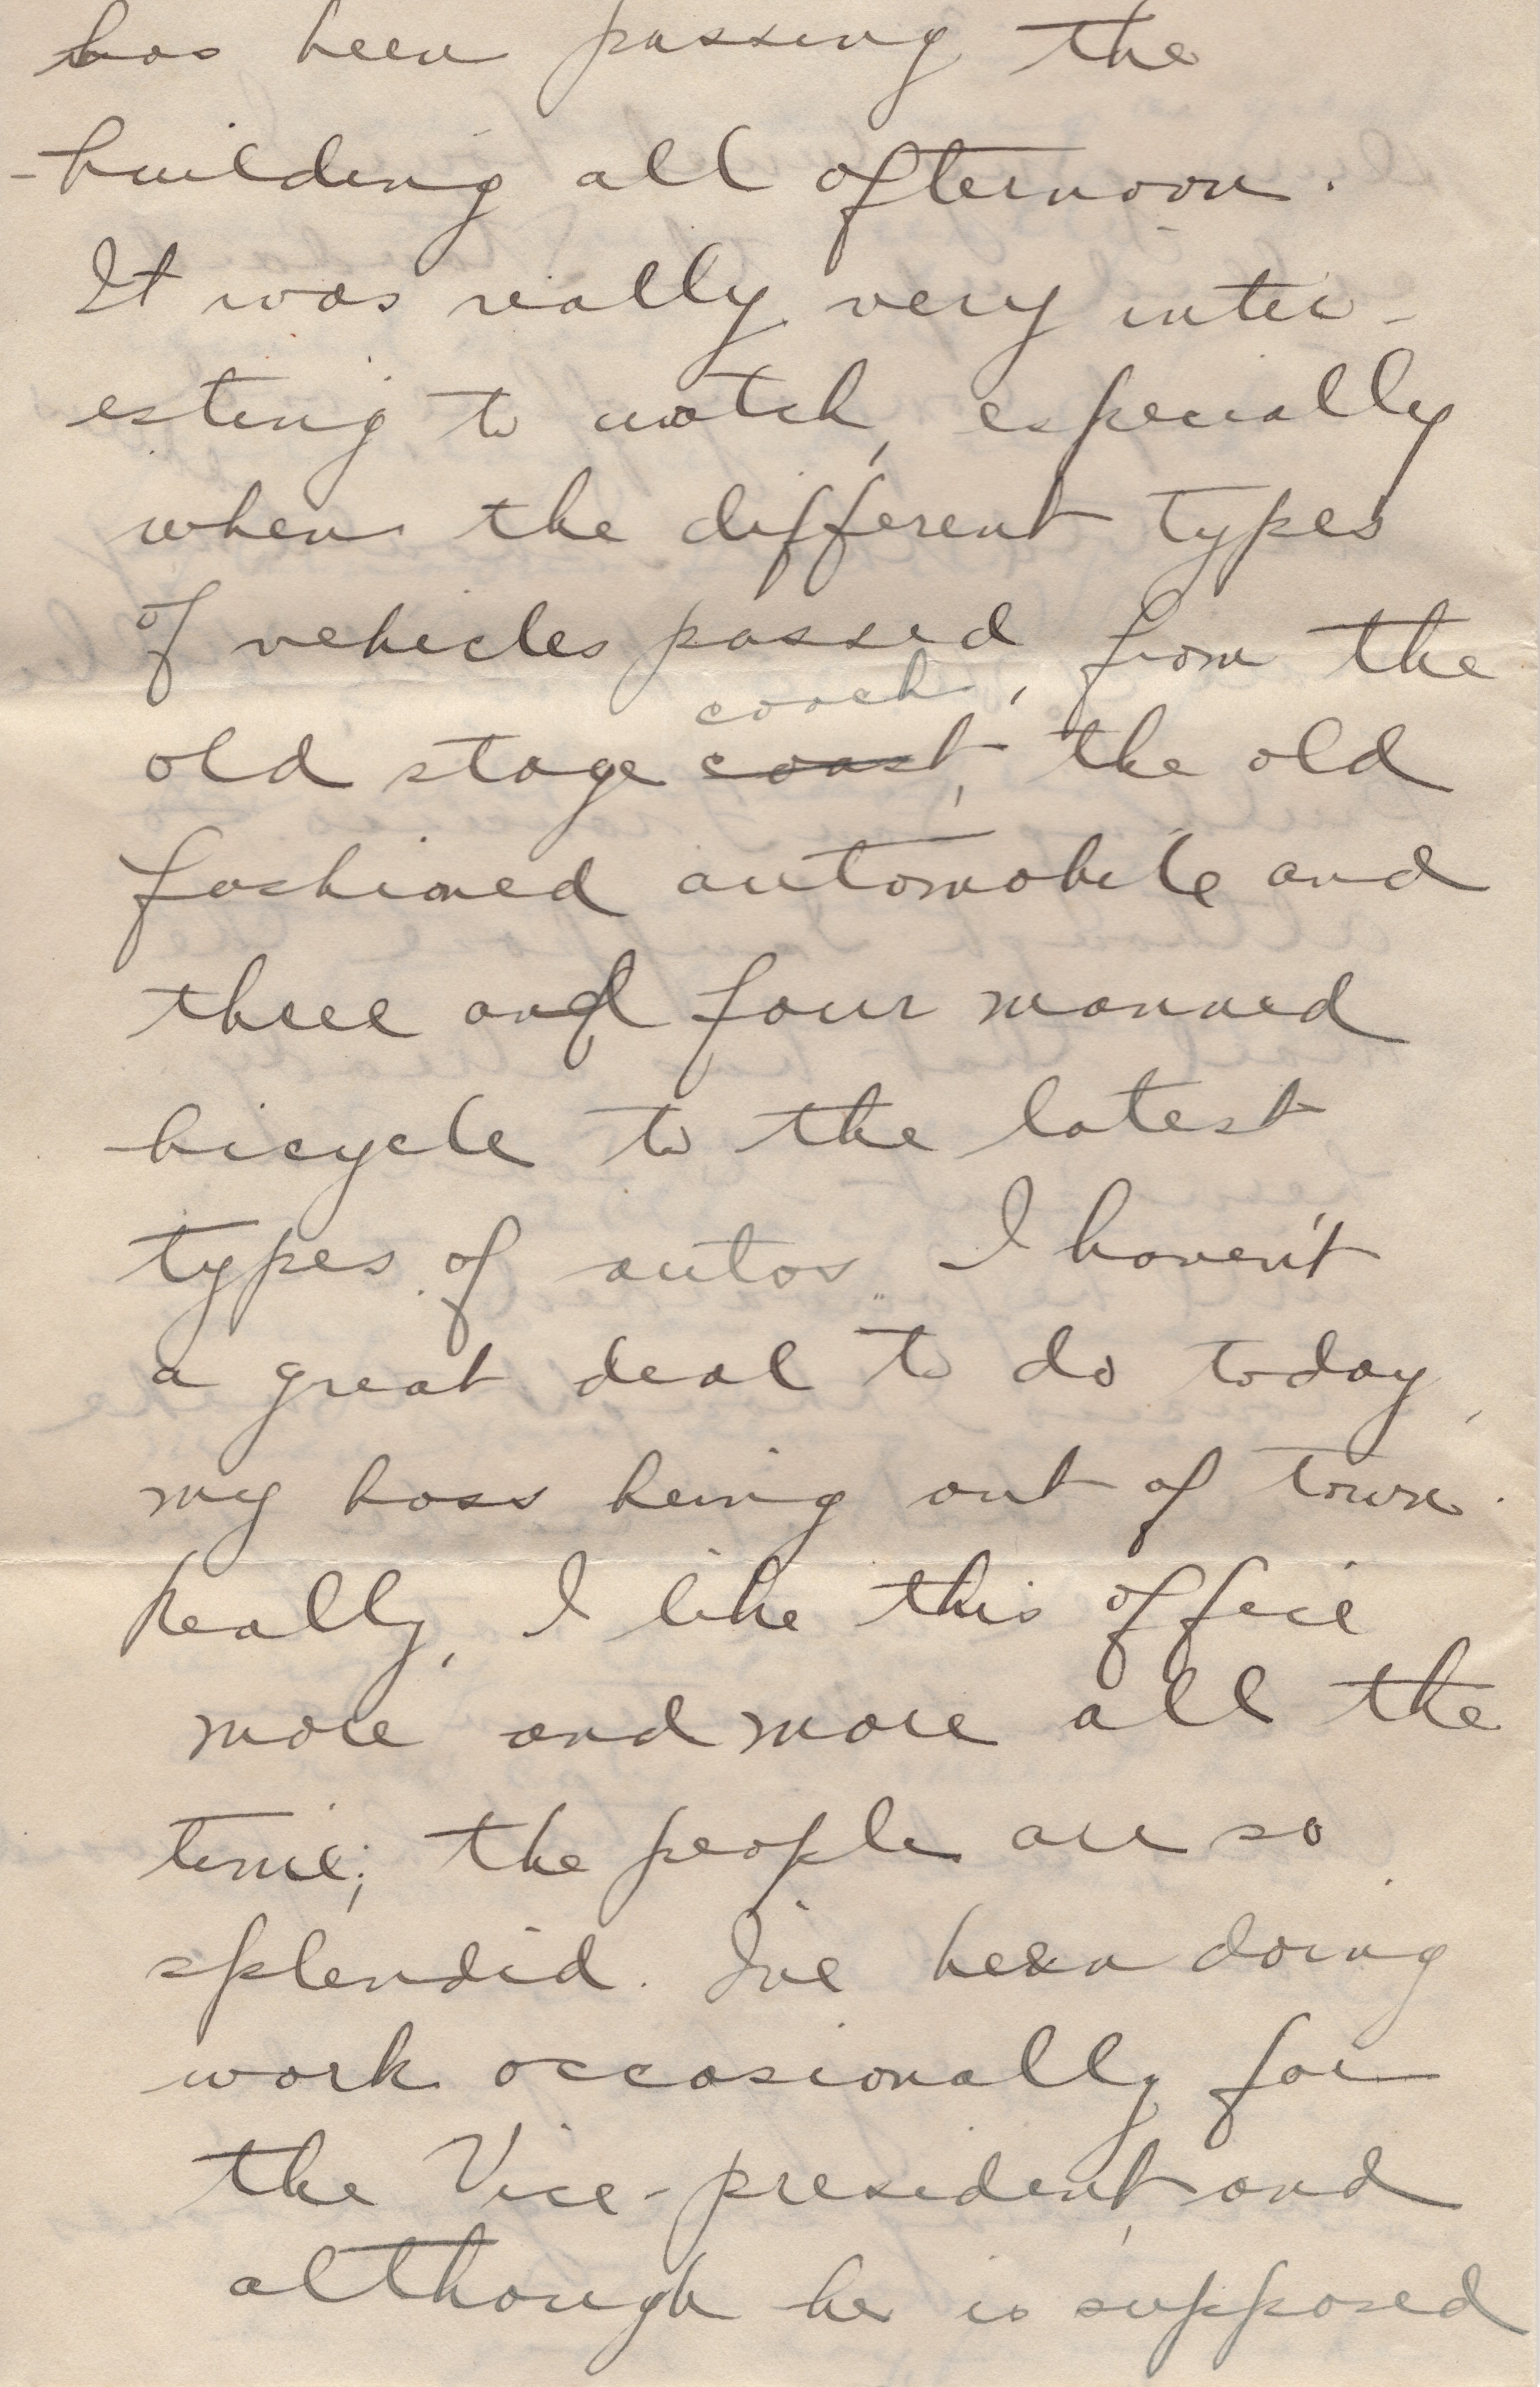 has been passing the
building all afternoon.
It was really very inter-
esting to watch, especially
when the different types
of vehicles passed, from the
coach,
old stage coast, the old
fashioned automobile and
three and four manned
bicycle to the latest
types of autos. I haven't
a great deal to do today,
my boss being out of town.
Really, I like this office
more and more all the
time; the people are so
splendid. I've been doing
work occasionally for
the Vice-president, and
although he is supposed